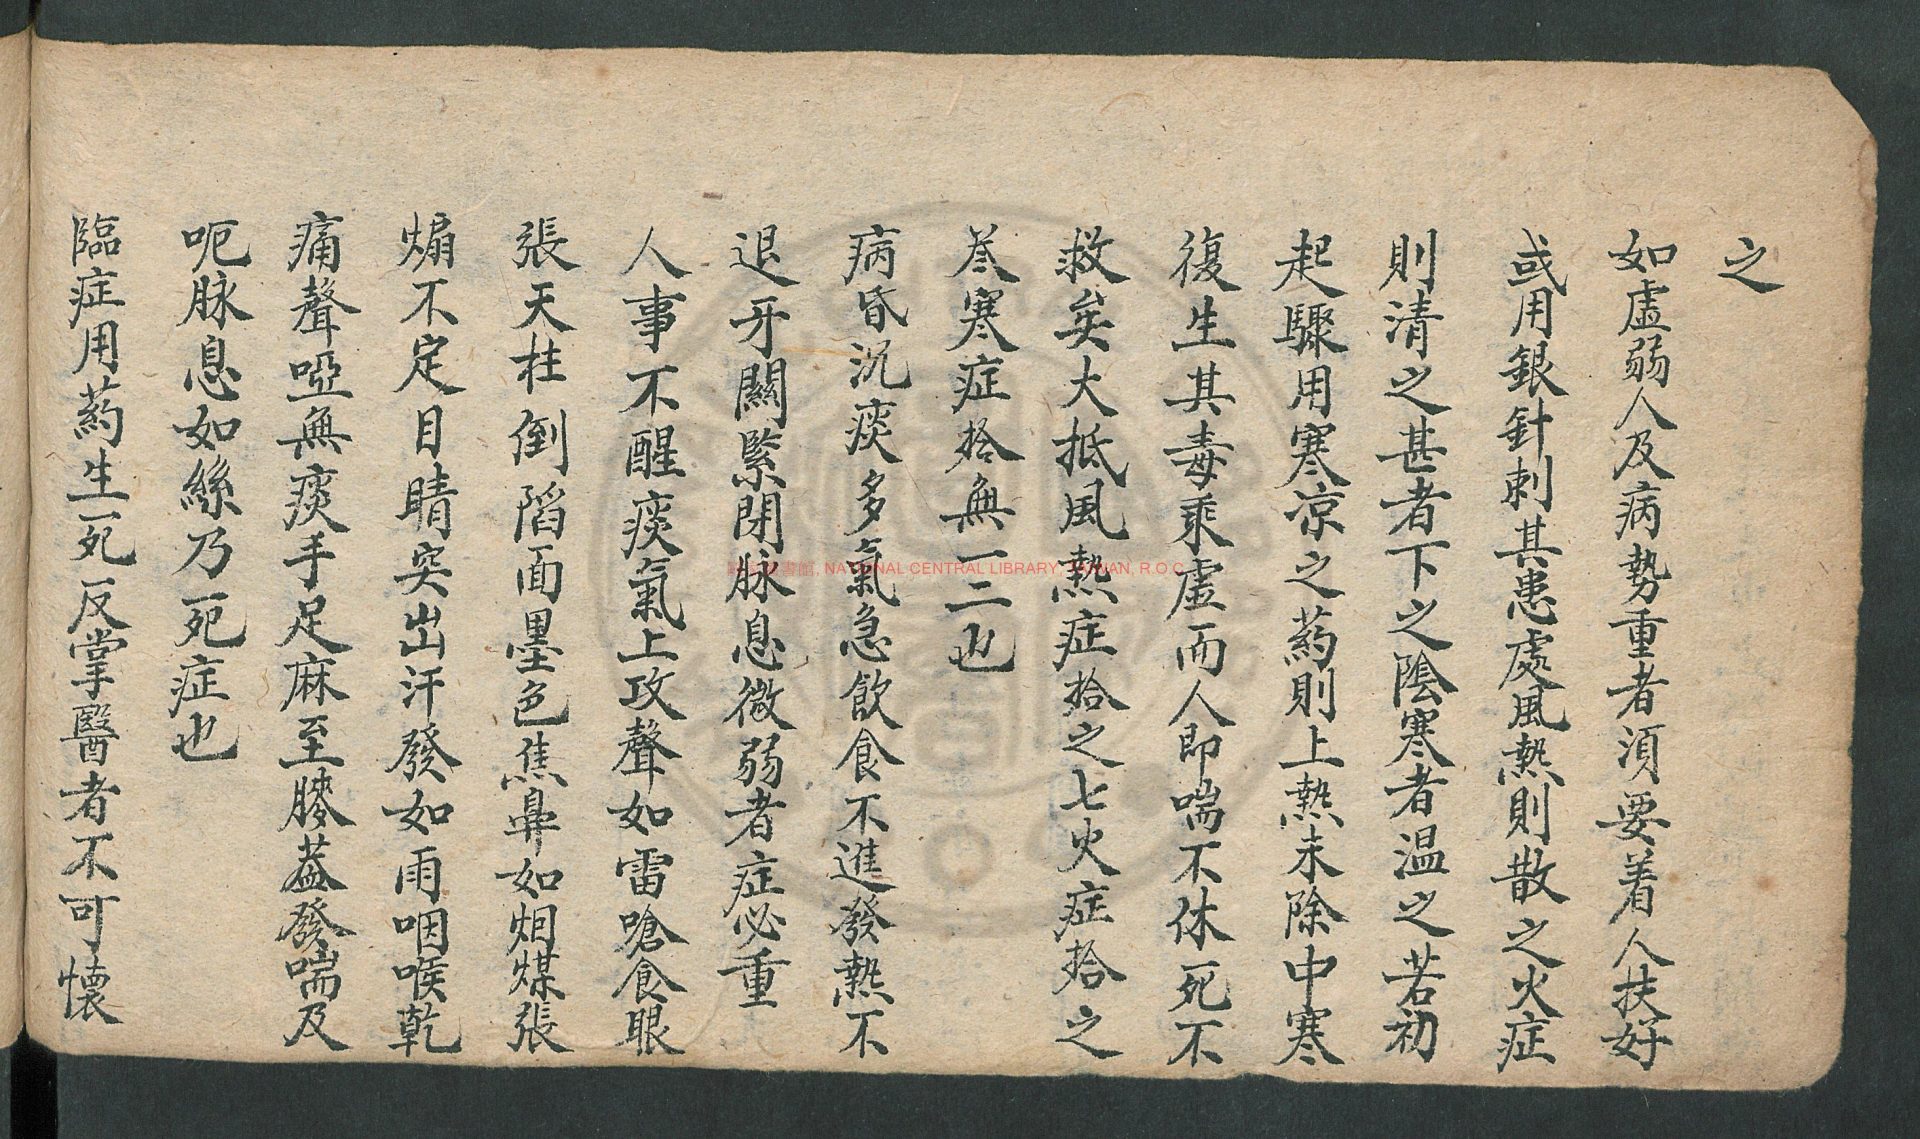 之
如虛弱人及病勢重者須要着人扶好
或用銀針刺其患處風熱則散之火症
則清之甚者下之陰寒者温之若初
起驟用寒凉之药則上熱未除中寒
復生其毒乘虛而人即喘不休死不
救矣大抵風熱症拾之七火症拾之
叁寒症拾無一二也
病昏沉痰多氣急飲食不進發熱不
退牙關緊閉脉息微弱者症必重
人事不醒痰氣上攻聲如雷嗆食眼
張天柱倒陷面墨色焦鼻如烟煤張
煽不定目睛突出汗發如雨咽喉乾
痛聲啞無痰手足麻至膝蓋發喘及
呃脉息如絲乃死症也
臨症用药生死反掌醫者不可懷
圖書館, NATIONAL CENTRAL LIBRARY, TAIWAN, R.O.C